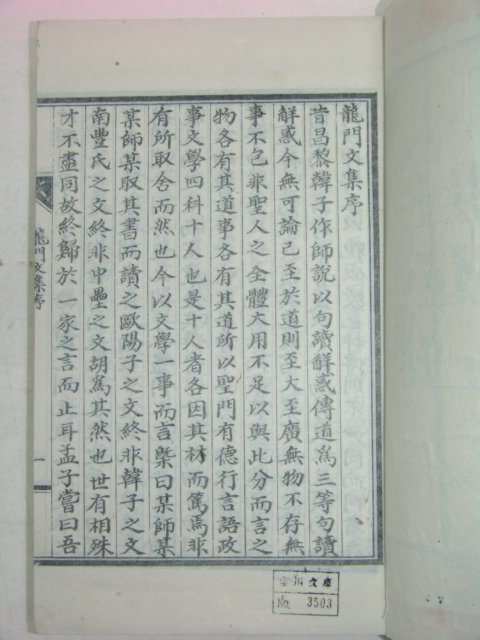 龍門文集序
昔昌黎韓子作師說以句讀解惑傳道爲三等句讀
解惑今無可論已至於道則至大至廣無物不存無
事不包非聖人之全體大用不足以與此分而言之
物各有其道事各有其道所以聖門有德行言語政
事文學四科十人也是十人者各因其材而篤焉非
有所取舍而然也今以文學一事而言槩曰某師某
某師某取其書而讀之歐陽子之文終非韓子之文
南豐氏之文終非中壘之文胡爲其然也世有相殊
才不盡同故終歸於一家之言而止耳孟子嘗曰吾
龍門文集序
一
文庫
No. 3503